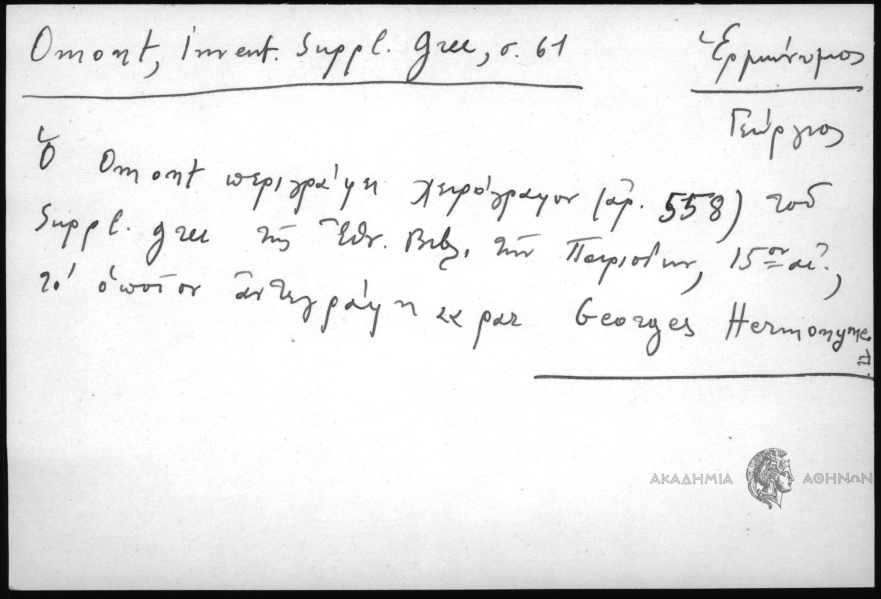 Omont, Invent. Suppl. Grec, σ. 61
Ἑρμώνυμος
Γεώργιος
Ὁ Omont περιγράφει χειρόγραφον (ἀρ. 558) τοῦ
Suppl. grec τῆς Ἐθν. Βιβλ. τῶν Παρισίων, 15ου αἰ.,
τὸ ὁποῖον ἀντεγράφη par Georges Hermonyme
ΑΚΑΔΗΜΙΑ ΑΘΗΝΩΝ